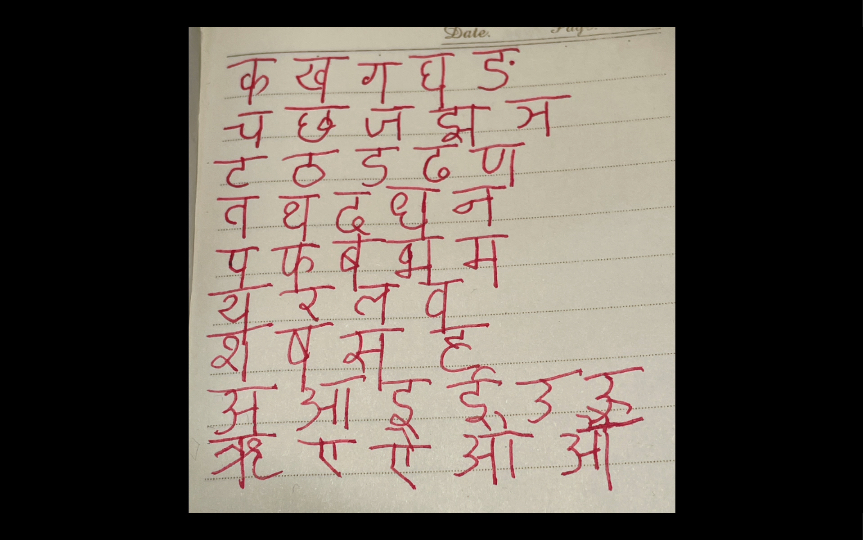 Date.
क ख ग घ ङ
च छ ज झ ञ
ट ठ ड ढ ण
त थ द ध न
प फ ब भ म
य र ल व
श ष स ह
अ आ इ ई उ ऊ
ऋ ए ऐ ओ औ